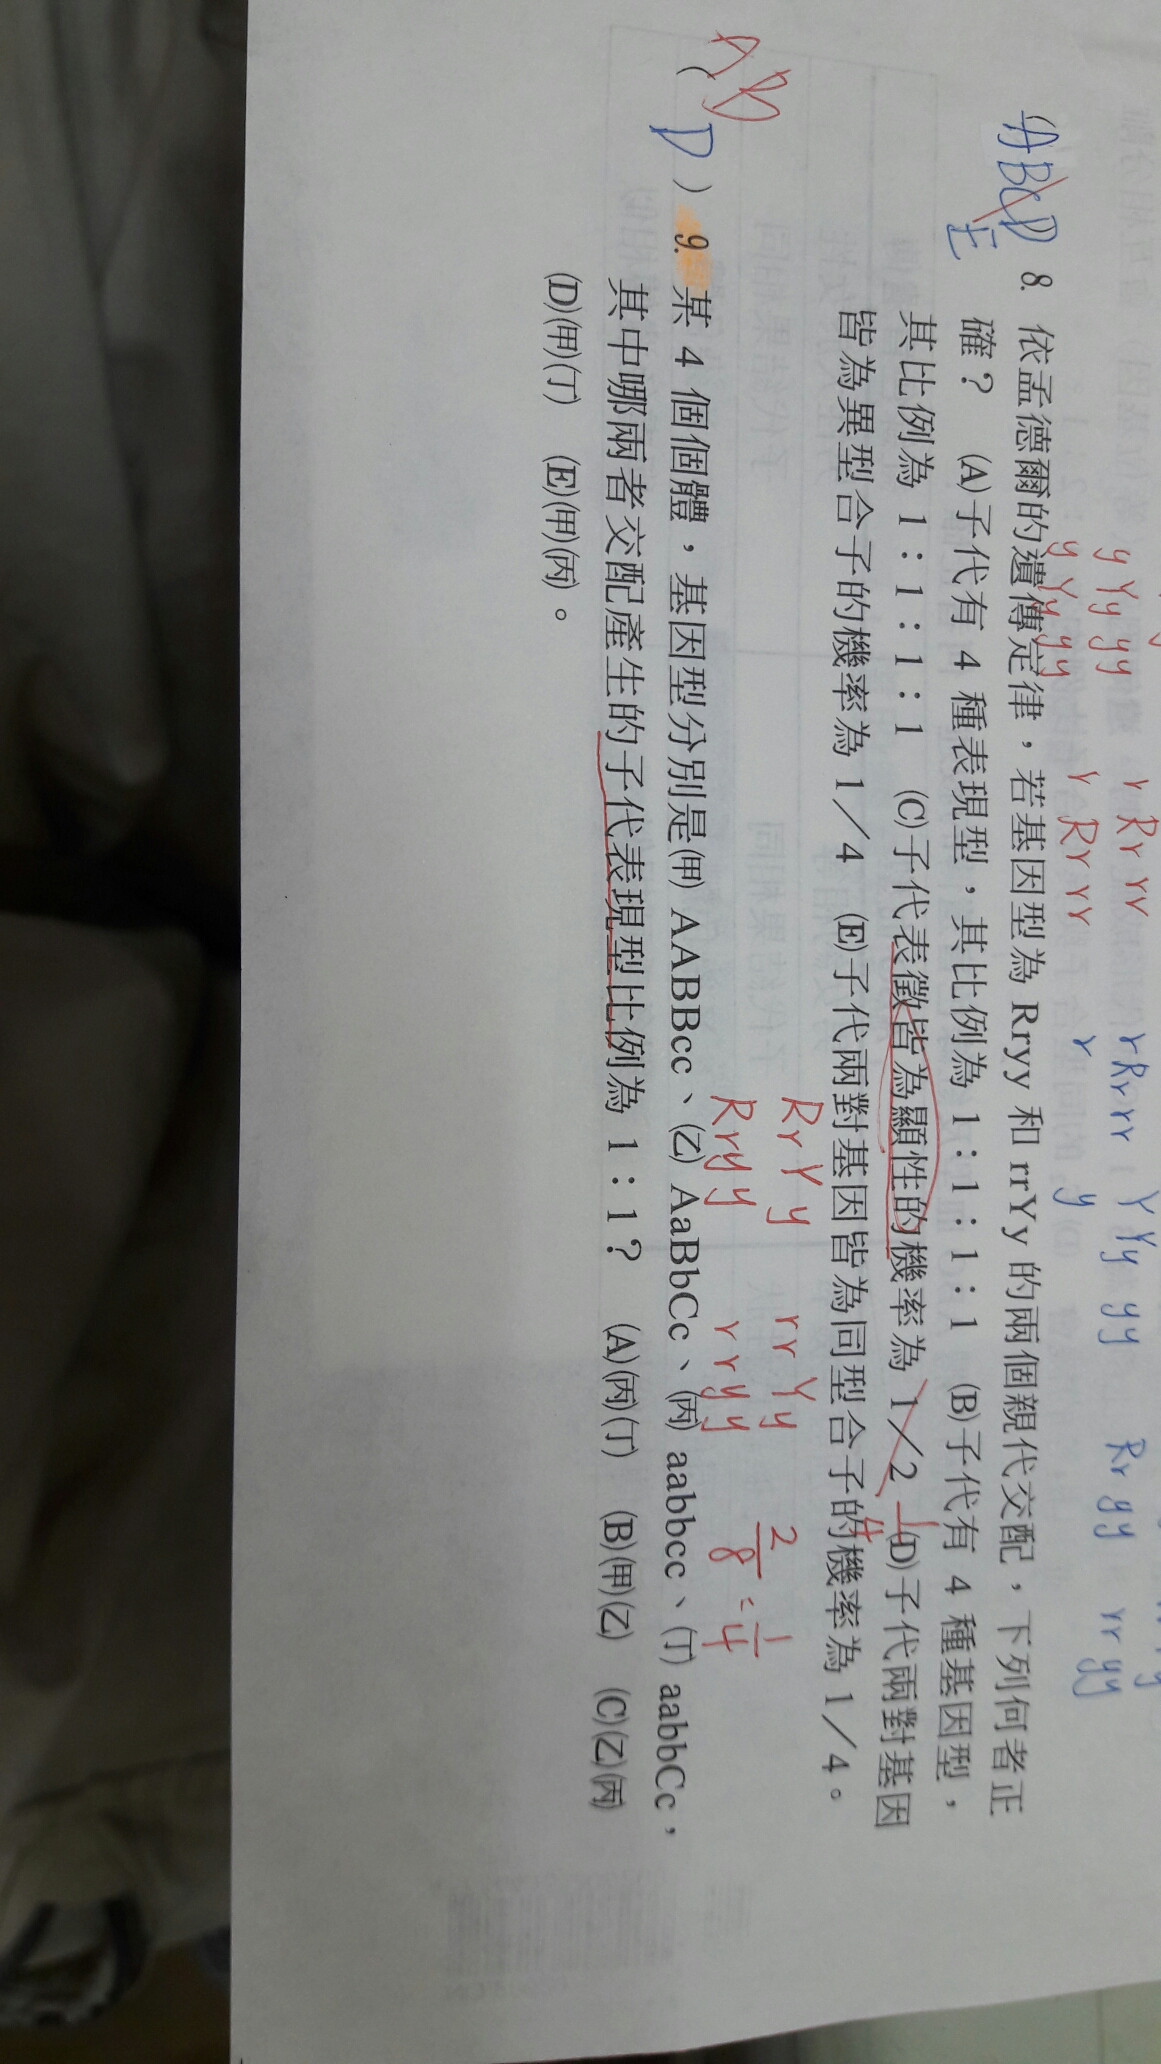 y Yy yy r Rr rr r Rr rr Y Yy yy Rryy rryy
y Yy yy r Rr rr r y
(ABCD E 8. 依孟德爾的遺傳定律，若基因型為 Rryy 和 rrYy 的兩個親代交配，下列何者正
確？ (A)子代有 4 種表現型，其比例為 1：1：1：1 (B)子代有 4 種基因型，
其比例為 1：1：1：1 (C)子代表徵皆為顯性的機率為 1／2 (D)子代兩對基因
1/4
皆為異型合子的機率為 1／4 (E)子代兩對基因皆為同型合子的機率為 1／4。
RrYy rrYy 2/8 = 1/4
Rryy rryy
AB
( D ) 9. 某 4 個個體，基因型分別是(甲) AABBcc、(乙) AaBbCc、(丙) aabbcc、(丁) aabbCc，
其中哪兩者交配產生的子代表現型比例為 1：1？ (A)(丙)(丁) (B)(甲)(乙) (C)(乙)(丙)
(D)(甲)(丁) (E)(甲)(丙)。